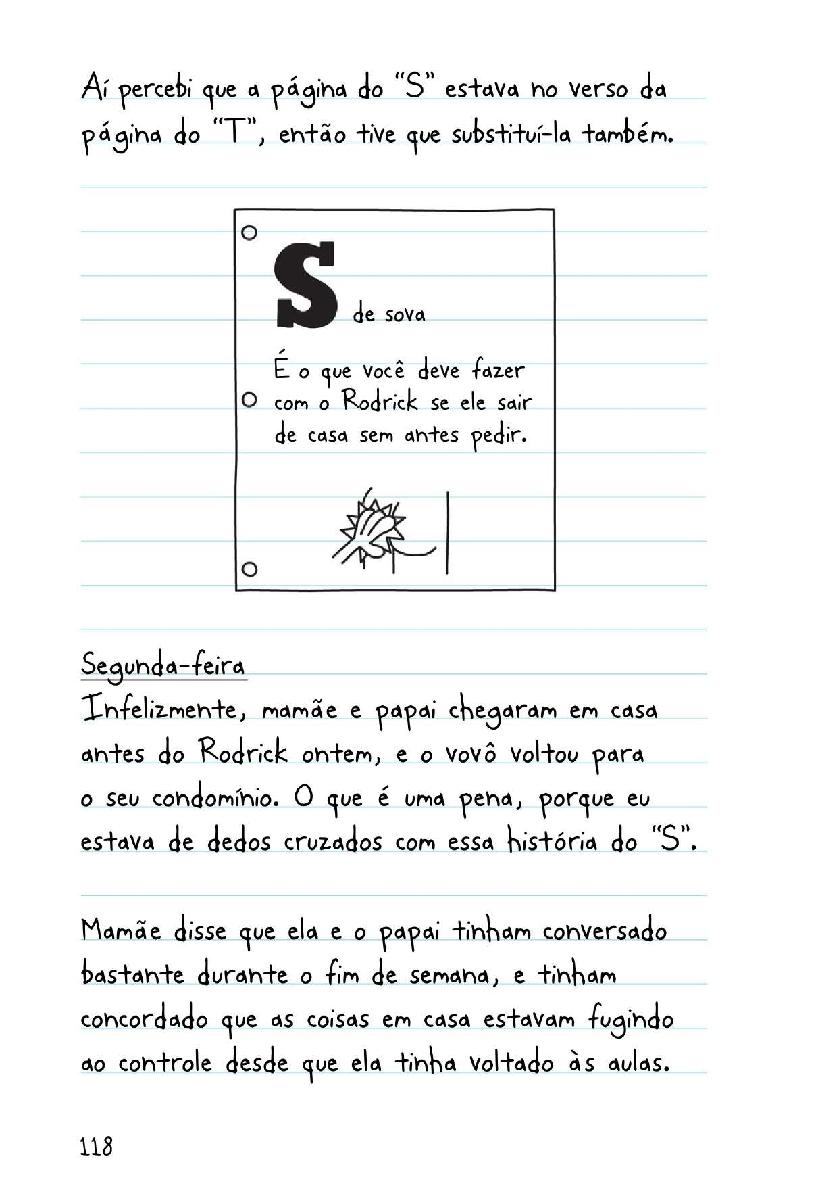 Aí percebi que a página do "S" estava no verso da
página do "T", então tive que substituí-la também.
S de sova
É o que você deve fazer
com o Rodrick se ele sair
de casa sem antes pedir.
Segunda-feira
Infelizmente, mamãe e papai chegaram em casa
antes do Rodrick ontem, e o vovô voltou para
o seu condomínio. O que é uma pena, porque eu
estava de dedos cruzados com essa história do "S".
Mamãe disse que ela e o papai tinham conversado
bastante durante o fim de semana, e tinham
concordado que as coisas em casa estavam fugindo
ao controle desde que ela tinha voltado às aulas.
118